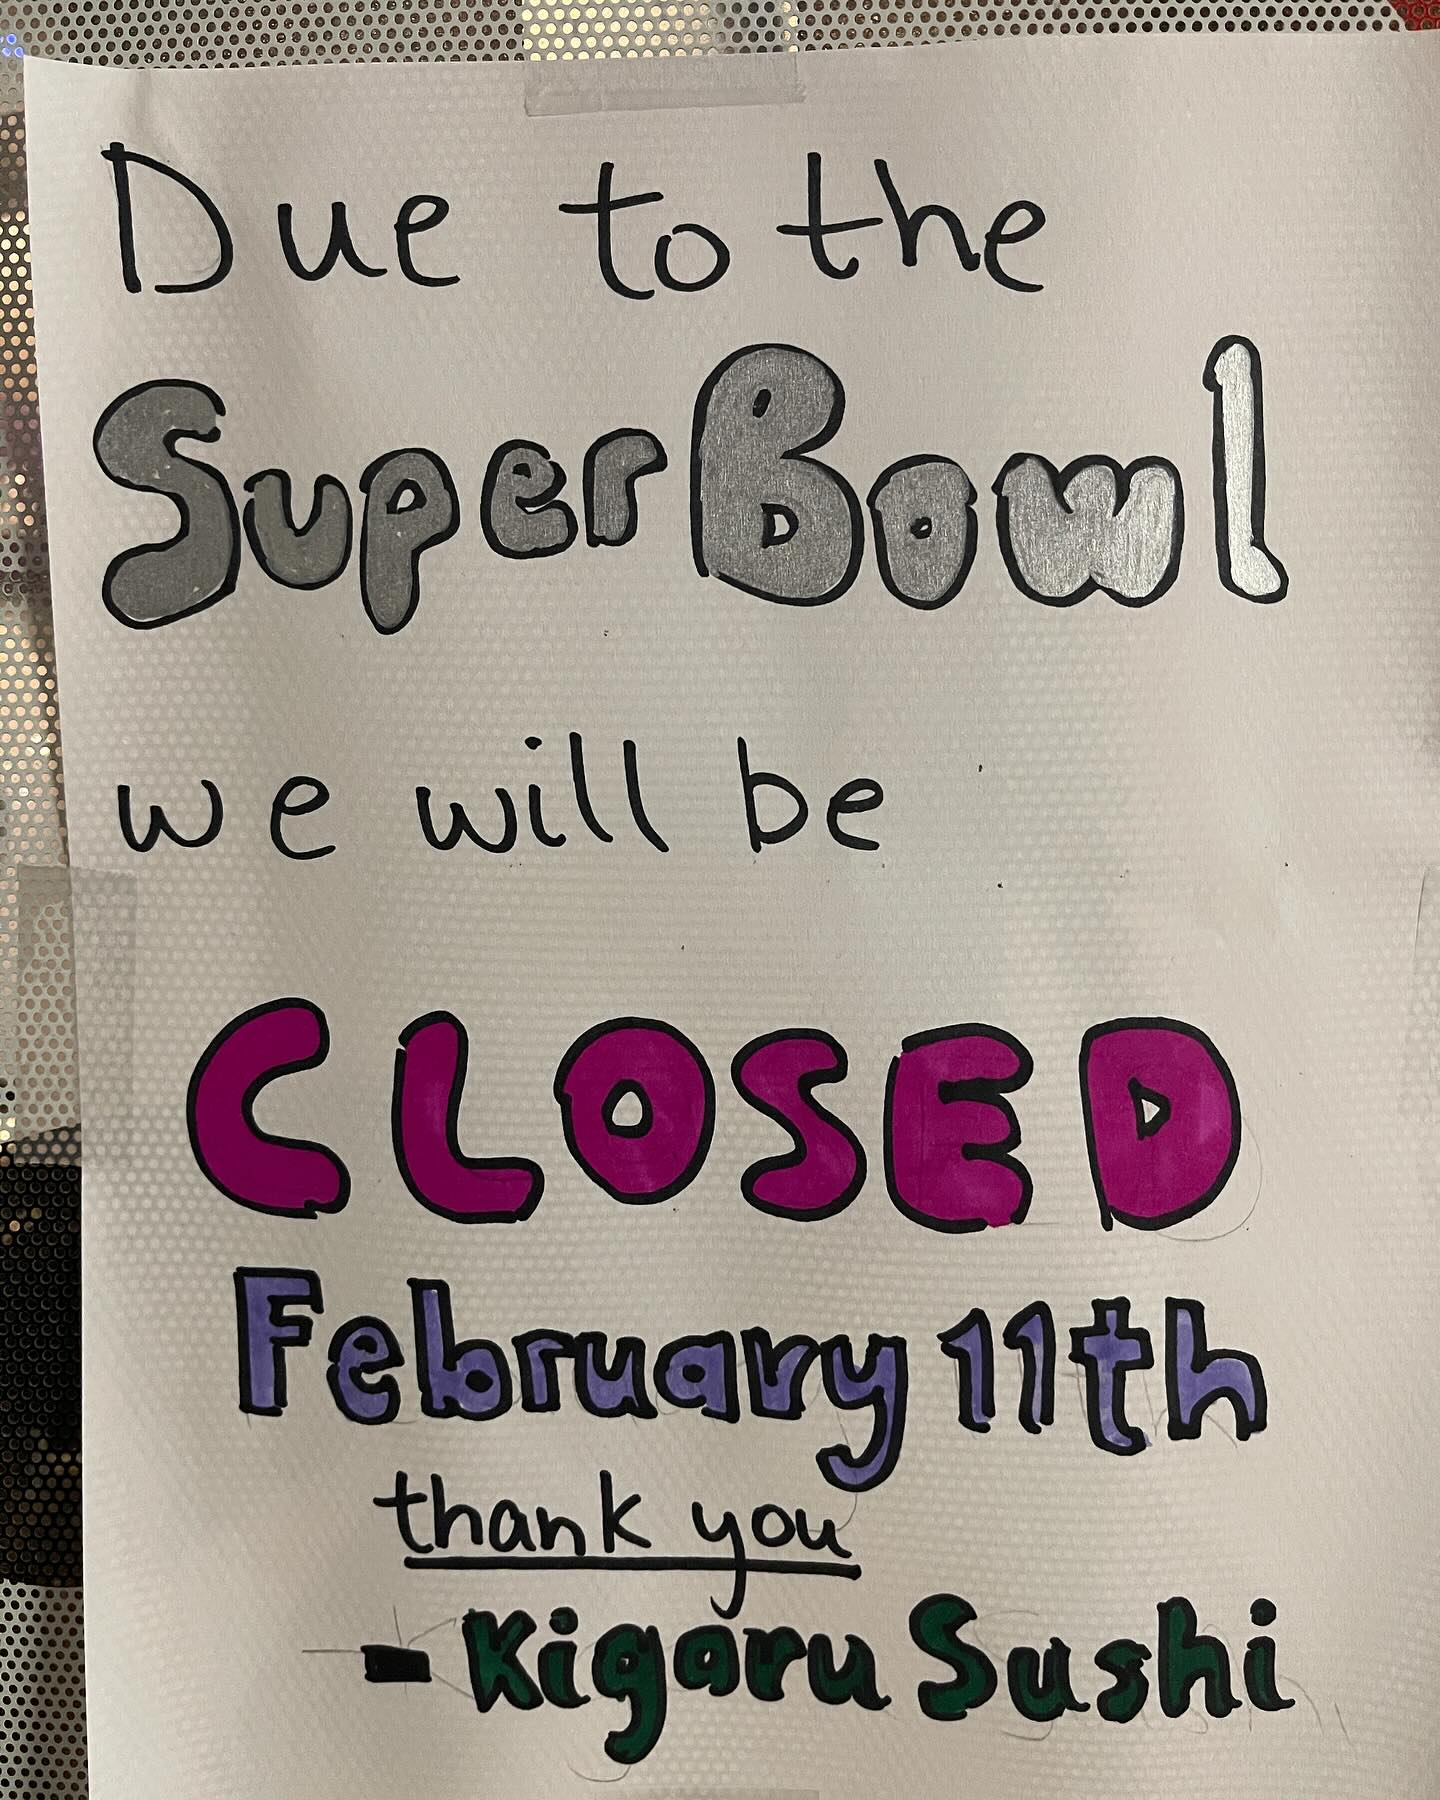 Due to the
SuperBowl
we will be
CLOSED
February 11th
thank you
- Kigaru Sushi